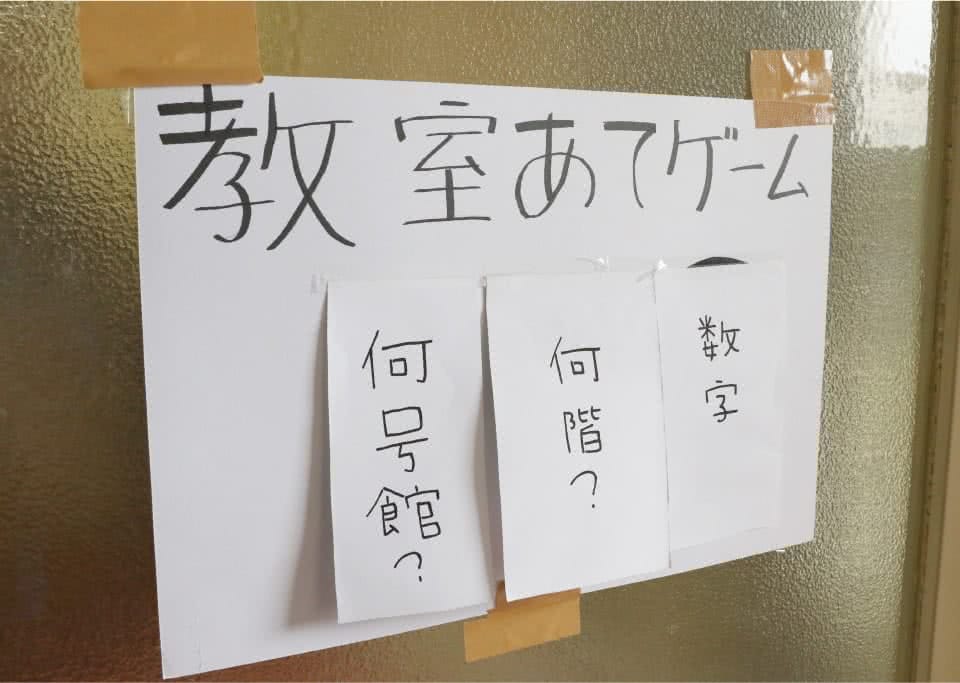 教室あてゲーム
何号館?
何階?
数字